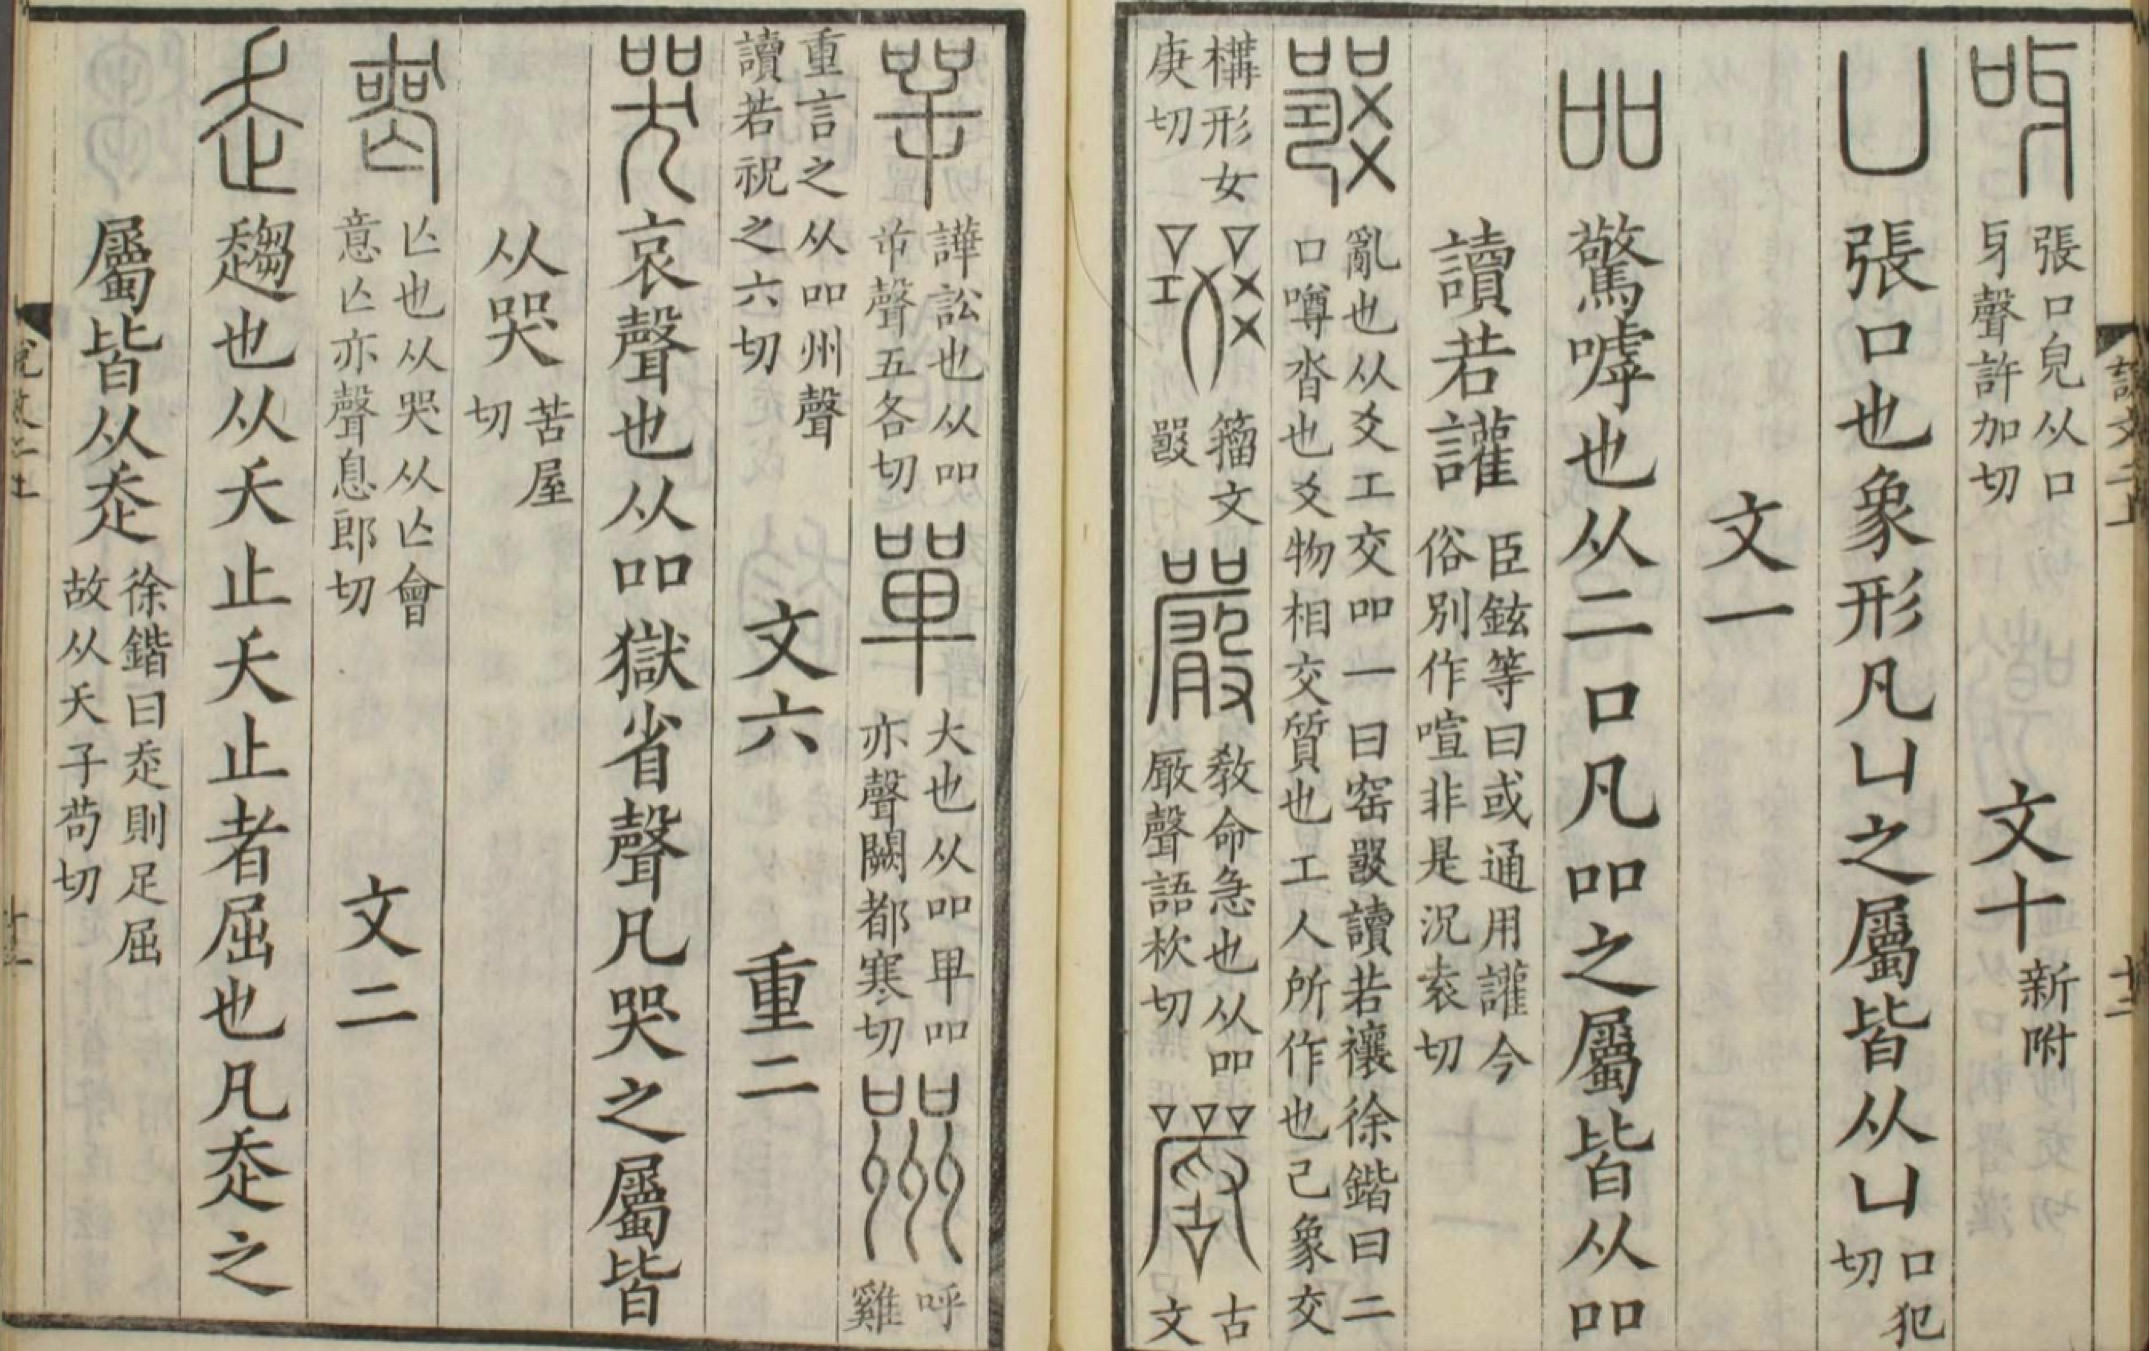 呀 張口皃从口
牙聲許加切 文十 新附
凵 張口也象形凡凵之屬皆从凵 口犯
切
文一
吅 驚嘑也从二口凡吅之屬皆从吅
讀若讙 臣鉉等曰或通用讙今
俗別作喧非是況袁切
𤕦 亂也从爻工交吅一曰窑𤕦讀若禳徐鍇曰二
口噂沓也爻物相交質也工人所作也己象交
構形女
庚切 籀文
𤕦 嚴 教命急也从吅
厰聲語杴切 古
文
咢 譁訟也从吅
屰聲五各切 單 大也从吅𠦒吅
亦聲闕都寒切 喌 呼
雞
重言之从吅州聲
讀若祝之六切 文六 重二
哭 哀聲也从吅獄省聲凡哭之屬皆
从哭 苦屋
切
喪 亾也从哭从亾會
意亾亦聲息郎切 文二
𧺆 趨也从夭止夭止者屈也凡𧺆之
屬皆从𧺆 徐鍇曰𧺆則足屈
故从夭子苟切
說文二上
十二